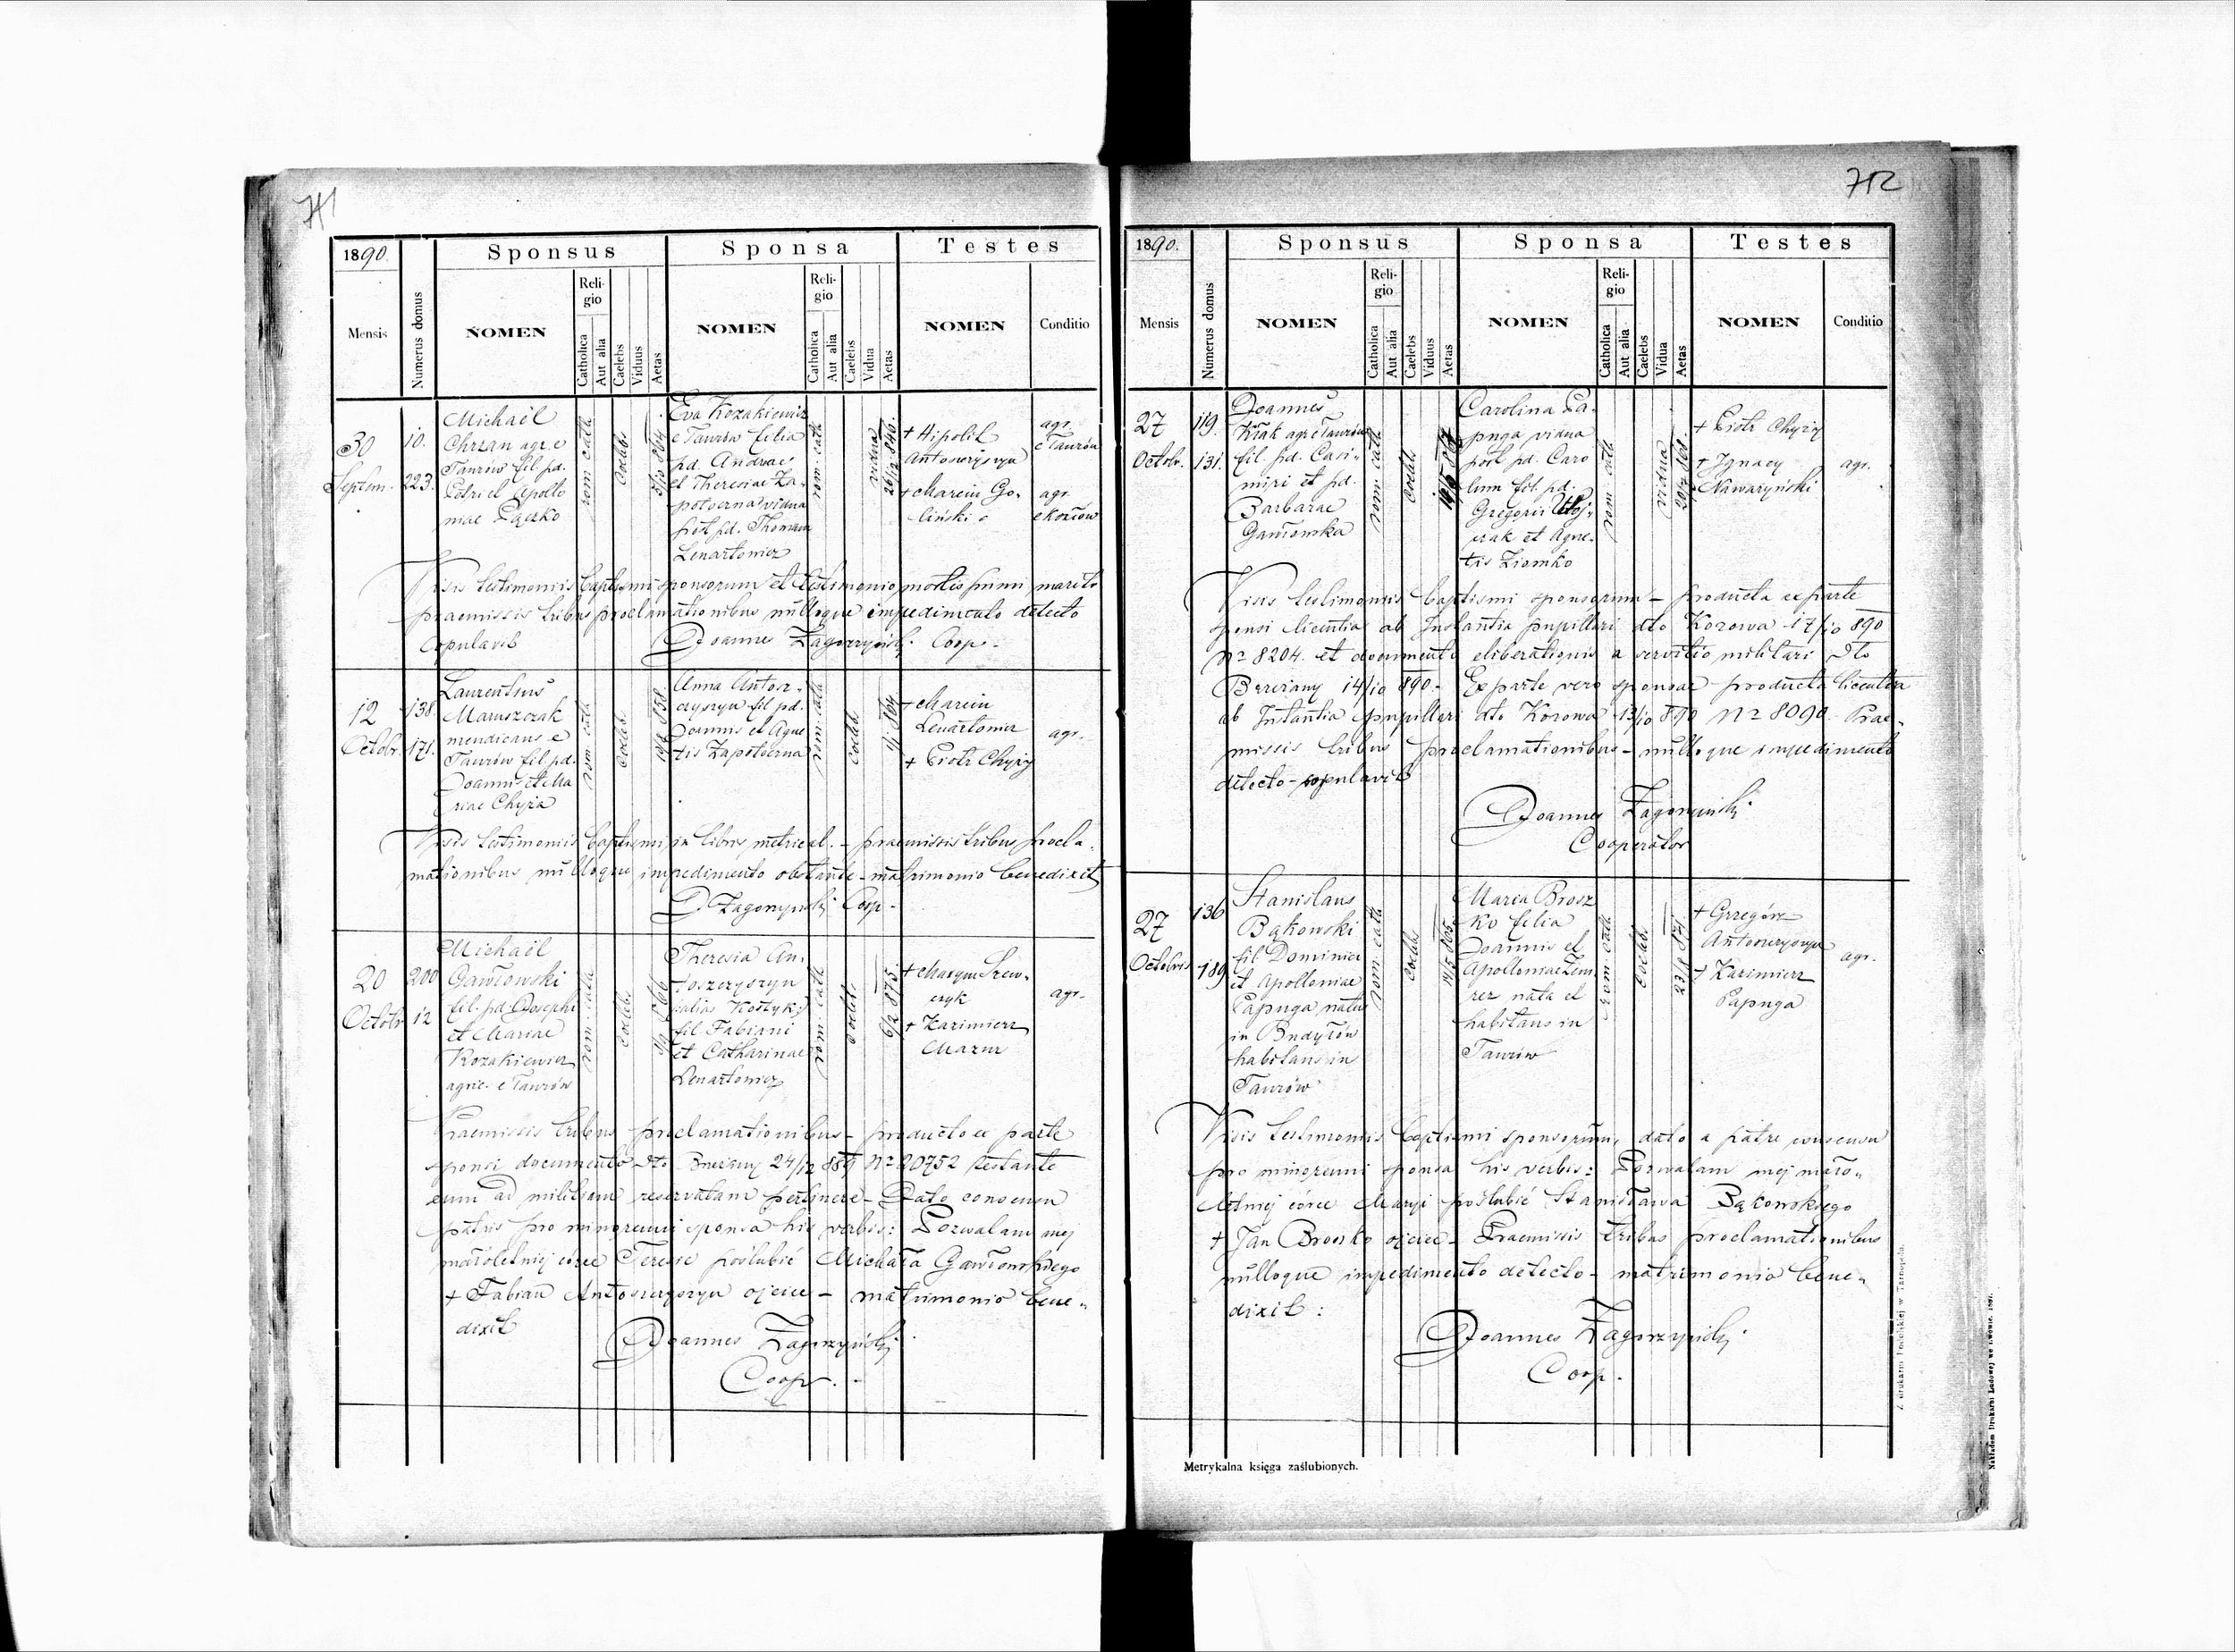 711
1890.
Mensis
Numerus domus
Sponsus
NOMEN
Religio
Catholica
Aut alia
Caelebs
Viduus
Aetas
Sponsa
NOMEN
Religio
Catholica
Aut alia
Caelebs
Vidua
Aetas
Testes
NOMEN
Conditio
30
Septem.
10.
223.
Michaël
Chrzan agr. e
Taurów fil pd.
Petri et Apollo
niae Pączko
rom. cath
Coeleb.
5/10 864
Eva Kozakiewicz
e Taurów filia
pd. Andreae
et Theresiae Za-
potoczna vidua
post pd. Thomam
Lenartowicz
rom. cath
vidua
26/12 846.
+ Hipolit
Antoszczyszyn
+ Marcin Go-
liński
agr.
e Taurów
agr
e Kozłów
Visis testimoniis baptismi sponsorum et testimonio mortis primi mariti
praemissis tribus proclamationibus nulloque impedimento detecto
copulavit
Joannes Zagorzyński Coop.
12
Octobr.
138.
171.
Laurentius
Maruszczak
mendicans e
Taurów fil pd.
Joannis et Ma
riae Chyża
rom. cath
Coeleb.
10/8 858.
Anna Antosz-
czyszyn fil pd.
Joannis et Agne
tis Zapotoczna
rom. cath
Coeleb.
+ Marcin
Lenartowicz
+ Piotr Chyży
agr.
Visis testimoniis baptismi ex libris metrical. - praemissis tribus procla-
mationibus nulloque impedimento obstante - matrimonio benedixit
J Zagorzyński Coop.
20
Octobr
200
12
Michaël
Gawłowski
fil. pd. Josephi
et Mariae
Kozakiewicz
agric. e Taurów
rom. cath
Coeleb.
Theresia An-
toszczyszyn
(alias Kostyk)
fil Fabiani
et Catharinae
Lenartowicz
rom. cath
Coeleb.
6/2 873.
+ Maxym Szew-
czyk
+ Kazimierz
Mazur
agr.
Praemissis tribus proclamationibus - producto ex parte
sponsi documento dto Brzeżany 24/12 889 No 20752 testante
eum ad militiam reservatam pertinere - Dato consensu
patris pro minorenni sponsa his verbis: Pozwalam mej
małoletniej córce Teresie poślubić Michała Gawłowskiego
+ Fabian Antoszczyszyn ojciec - matrimonio bene-
dixit
Joannes Zagorzyński
Coop.
712
1890.
Mensis
Numerus domus
Sponsus
NOMEN
Religio
Catholica
Aut alia
Caelebs
Viduus
Aetas
Sponsa
NOMEN
Religio
Catholica
Aut alia
Caelebs
Vidua
Aetas
Testes
NOMEN
Conditio
27
Octobr.
119.
131.
Joannes
Kłak agr e Taurów
fil. pd. Casi-
miri et pd.
Barbarae
Gawłowska
rom. cath
Coeleb.
Carolina Pa-
puga vidua
post pd. Caro
lum fil. pd.
Gregorii
et Agne-
tis Ziomko
rom. cath
vidua
+ Piotr Chyży
+ Ignacy
Nawaryński
agr.
Visis testimoniis baptismi sponsorum - producta ex parte
sponsi licentia ab Instantia pupillari dto Kozowa 17/10 890
No 8204. et documento eliberationis a servitio militari dto
Brzeżany 14/10 890. - Ex parte vero sponsae producta licentia
ab Instantia pupillari dto Kozowa 13/10 890 No 8090. Prae-
missis tribus proclamationibus - nulloque impedimento
detecto - copulavit
Joannes Zagorzyński
Cooperator
27
Octobris
136
189
Stanislaus
Bąkowski
fil Dominici
et Apolloniae
Papuga natus
in Budyłów
habitans in
Taurów
rom. cath
Coeleb.
14/5 865
Maria Brosz
ko filia
Joannis et
Apolloniae
nata et
habitans in
Taurów
rom. cath
Coeleb.
23/8 871
+ Grzegórz
Antoszczyszyn
+ Kazimierz
Papuga
agr.
Visis testimoniis baptismi sponsorum, dato a patre consensu
pro minorenni sponsa his verbis: Pozwalam mej mało-
letniej córce Maryi poślubić Stanisława Bąkowskiego
+ Jan Broszko ojciec - Praemissis tribus proclamationibus
nulloque impedimento detecto - matrimonio bene-
dixit :
Joannes Zagorzyński
Coop.
Metrykalna księga zaślubionych.
Z drukarni Podolskiej w Tarnopolu.
Nakładem Drukarni Ludowej we Lwowie. 1887.